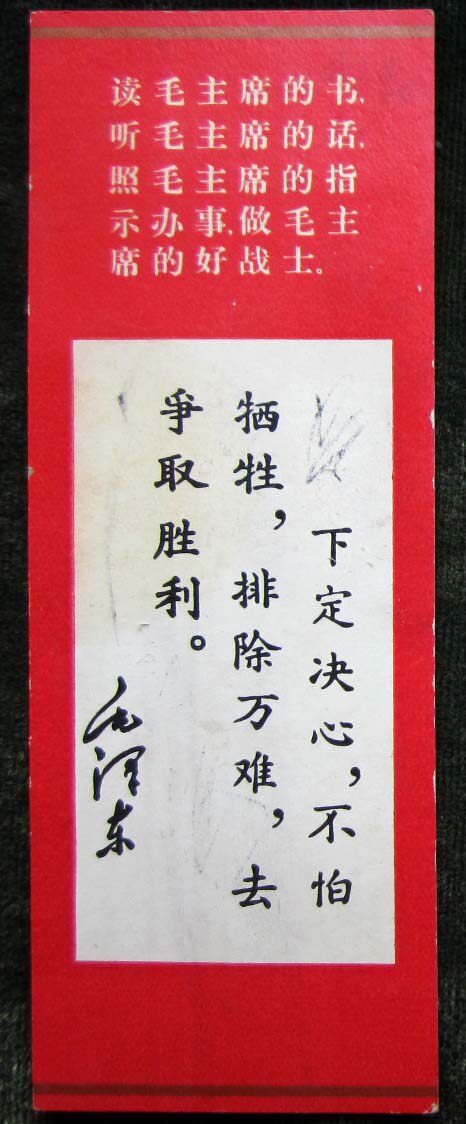 读毛主席的书，
听毛主席的话，
照毛主席的指
示办事，做毛主
席的好战士。
下定决心，不怕
牺牲，排除万难，去
争取胜利。
毛泽东